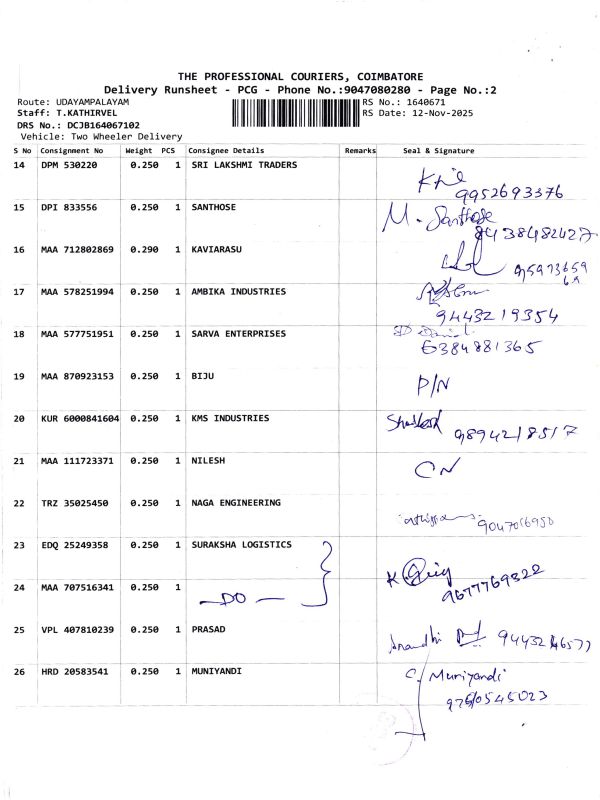 THE PROFESSIONAL COURIERS, COIMBATORE
Delivery Runsheet - PCG - Phone No.:9047080280 - Page No.:2
Route: UDAYAMPALAYAM RS No.: 1640671
Staff: T.KATHIRVEL RS Date: 12-Nov-2025
DRS No.: DCJB164067102
Vehicle: Two Wheeler Delivery
S No Consignment No Weight PCS Consignee Details Remarks Seal & Signature
14 DPM 530220 0.250 1 SRI LAKSHMI TRADERS
9952693376
15 DPI 833556 0.250 1 SANTHOSE M. Santhose
8438482427
16 MAA 712802869 0.290 1 KAVIARASU
17 MAA 578251994 0.250 1 AMBIKA INDUSTRIES
9443219354
18 MAA 577751951 0.250 1 SARVA ENTERPRISES
6384881365
19 MAA 870923153 0.250 1 BIJU P/N
20 KUR 6000841604 0.250 1 KMS INDUSTRIES
9894218517
21 MAA 111723371 0.250 1 NILESH CN
22 TRZ 35025450 0.250 1 NAGA ENGINEERING
23 EDQ 25249358 0.250 1 SURAKSHA LOGISTICS
9677769322
24 MAA 707516341 0.250 1 —DO—
25 VPL 407810239 0.250 1 PRASAD Anandhi
26 HRD 20583541 0.250 1 MUNIYANDI C/ Muniyandi